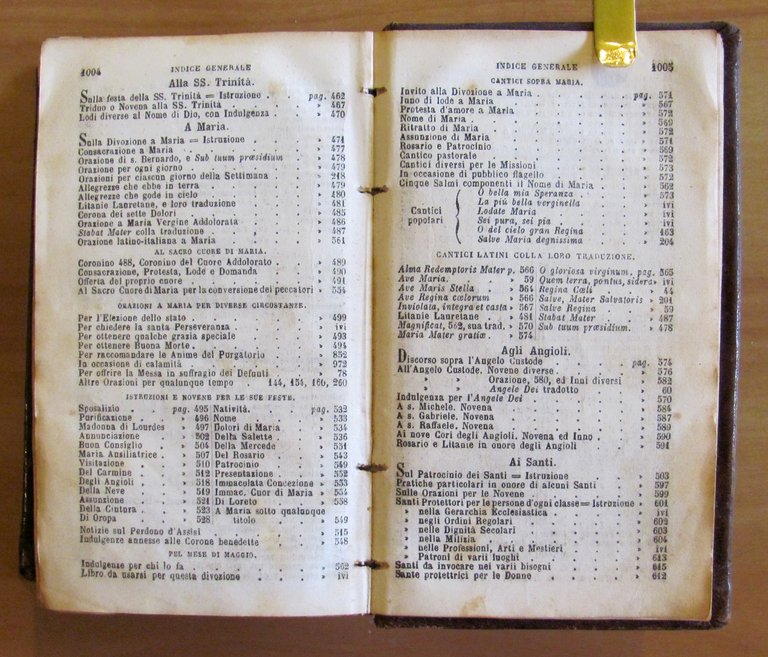 1004 INDICE GENERALE
Alla SS. Trinità.
Sulla festa della SS. Trinità = Istruzione . pag. 462
Triduo o Novena alla SS. Trinità . . . » 467
Lodi diverse al Nome di Dio, con Indulgenza . » 470
A Maria.
Sulla Divozione a Maria = Istruzione . . . » 471
Consacrazione a Maria . . . » 477
Orazione di s. Bernardo, e Sub tuum præsidium » 478
Orazione per ogni giorno . . . » 479
Orazioni per ciascun giorno della Settimana . » 248
Allegrezze che ebbe in terra . . . » 479
Allegrezze che gode in cielo . . . » 480
Litanie Lauretane, e loro traduzione . . . » 481
Corona dei sette Dolori . . . » 485
Orazione a Maria Vergine Addolorata . . . » 486
Stabat Mater colla traduzione . . . » 487
Orazione latino-italiana a Maria . . . » 561
AL SACRO CUORE DI MARIA.
Coronino 488, Coronino del Cuore Addolorato . » 489
Consacrazione, Protesta, Lode e Domanda . » 490
Offerta del proprio cuore . . . » 491
Al Sacro Cuore di Maria per la conversione dei peccatori » 554
ORAZIONI A MARIA PER DIVERSE CIRCOSTANZE.
Per l'Elezione dello stato . . . » 499
Per chiedere la santa Perseveranza . . . » ivi
Per ottenere qualche grazia speciale . . . » 493
Per ottenere Buona Morte . . . » 494
Per raccomandare le Anime del Purgatorio . » 852
In occasione di calamità . . . » 972
Per offrire la Messa in suffragio dei Defunti . » 78
Altre Orazioni per qualunque tempo . 144, 154, 160, 260
ISTRUZIONI E NOVENE PER LE SUE FESTE.
Sposalizio . pag. 495 Natività. . pag. 532
Purificazione . » 496 Nome . . » 533
Madonna di Lourdes » 497 Dolori di Maria . » 534
Annunciazione . » 502 Della Salette . . » 536
Buon Consiglio . » 504 Della Mercede . » 531
Maria Ausiliatrice . » 507 Del Rosario . . » 543
Visitazione . » 510 Patrocinio . . » 549
Del Carmine . » 512 Presentazione . » 552
Degli Angioli . » 518 Immacolata Concezione » 553
Della Neve . » 519 Immac. Cuor di Maria » 554
Assunzione . » 521 Di Loreto . . » 558
Della Cintura . » 523 A Maria sotto qualunque
Di Oropa . . » 528 titolo . . » 549
Notizie sul Perdono d'Assisi . . . » 515
Indulgenze annesse alle Corone benedette . » 548
PEL MESE DI MAGGIO.
Indulgenze per chi lo fa . . . » 562
Libro da usarsi per questa divozione . . . » ivi
INDICE GENERALE 1005
CANTICI SOPRA MARIA.
Invito alla Divozione a Maria . . . pag. 571
Inno di lode a Maria . . . » 567
Protesta d'amore a Maria . . . » 572
Nome di Maria . . . » 569
Ritratto di Maria . . . » 572
Assunzione di Maria . . . » 571
Rosario e Patrocinio . . . » 569
Cantico pastorale . . . » 572
Cantici diversi per le Missioni . . . » 573
In occasione di pubblico flagello . . . » 572
Cinque Salmi componenti il Nome di Maria . » 562
O bella mia Speranza . » 573
La più bella verginella . » ivi
Cantici Lodate Maria . . » ivi
popolari Sei pura, sei pia . . » ivi
O del cielo gran Regina . » 163
Salve Maria degnissima . » 204
CANTICI LATINI COLLA LORO TRADUZIONE.
Alma Redemptoris Mater p. 566 O gloriosa virginum, pag. 565
Ave Maria. . . » 59 Quem terra, pontus, sidera » ivi
Ave Maris Stella . » 564 Regina Cœli . . » 44
Ave Regina cœlorum » 566 Salve, Mater Salvatoris » 201
Inviolata, integra et casta » 567 Salve Regina . . » 59
Litanie Lauretane . » 481 Stabat Mater . » 487
Magnificat, 562, sua trad. » 570 Sub tuum præsidium. » 478
Maria Mater gratiæ. . » 574
Agli Angioli.
Discorso sopra l'Angelo Custode . . . pag. 574
All'Angelo Custode. Novene diverse . . . » 576
» » Orazione, 580, ed Inni diversi » 582
» » Angele Dei tradotto . » 60
Indulgenza per l'Angele Dei . . . » 570
A s. Michele. Novena . . . » 584
A s. Gabriele. Novena . . . » 587
A s. Raffaele. Novena . . . » 589
Ai nove Cori degli Angioli. Novena ed Inno . » 590
Rosario e Litanie in onore degli Angioli . » 591
Ai Santi.
Sul Patrocinio dei Santi = Istruzione . . » 593
Pratiche particolari in onore di alcuni Santi . » 597
Sulle Orazioni per le Novene . . . » 599
Santi Protettori per le persone d'ogni classe = Istruzione » 601
» nella Gerarchia Ecclesiastica . . » ivi
» negli Ordini Regolari . . . » 602
» nelle Dignità Secolari . . . » 603
» nella Milizia . . . » 604
» nelle Professioni, Arti e Mestieri . . » ivi
» Patroni di varii luoghi . . . » 613
Santi da invocare nei varii bisogni . . . » 615
Sante protettrici per le Donne . . . » 612